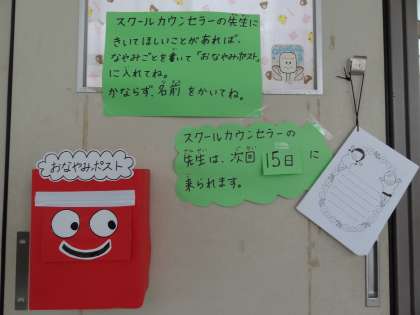 スクールカウンセラーの先生に
きいてほしいことがあれば、
なやみごとを書いて「おなやみポスト」
に入れてね。
かならず、名前をかいてね。
スクールカウンセラーの
先生は、次回 15日 に
来られます。
おなやみポスト